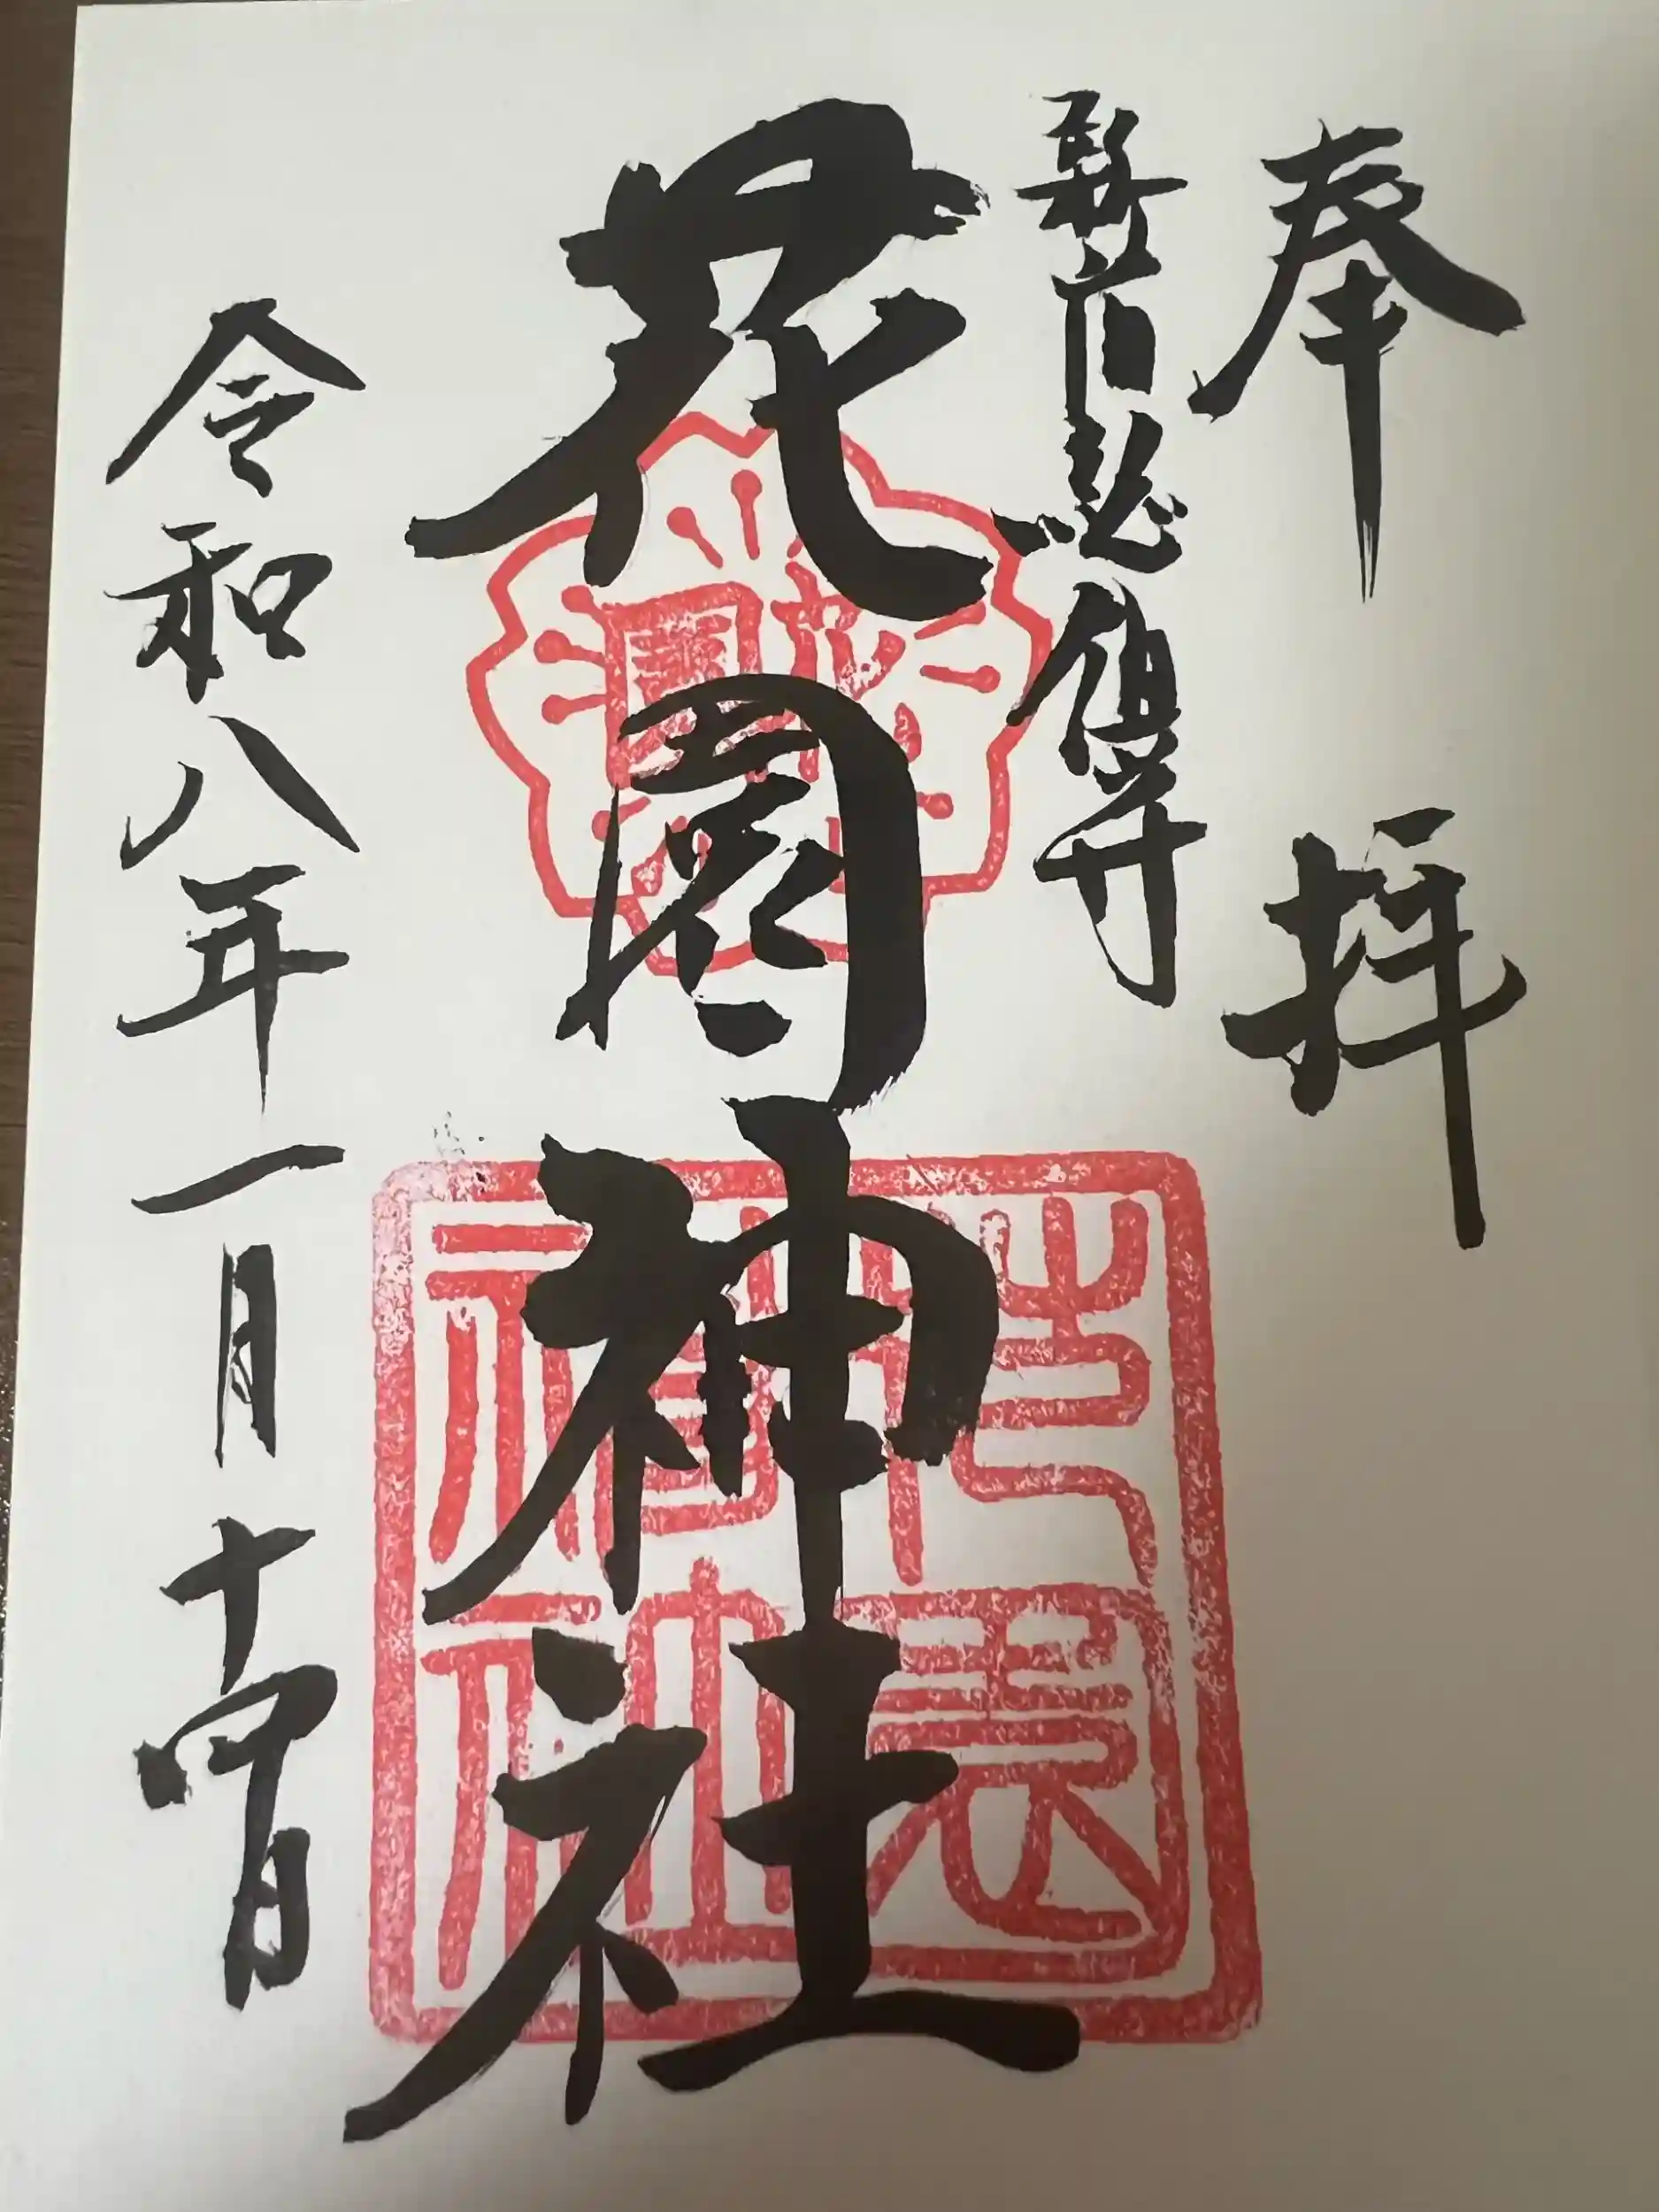 奉拝
新宿総鎮守
花園神社
令和八年一月十四日
花園神社